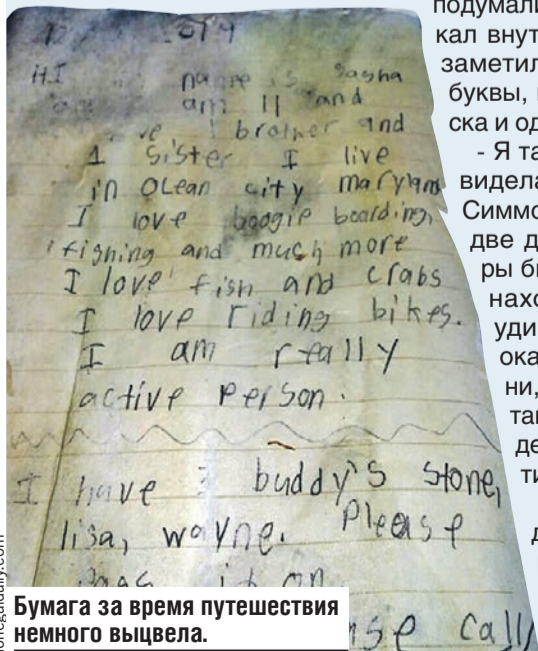 HI name is Sasha
am 11 and
brother and
1 Sister I live
in Ocean city maryland
I love boogie boarding,
fishing and much more
I love fish and crabs
I love riding bikes.
I am really
active person.
I have 3 buddy's Stone,
lisa, wayne. Please
Pass it on.
call
Бумага за время путешествия
немного выцвела.
подумали
кал внут
заметил
буквы,
ска и од
- Я та
видела
Симмо
две д
ры б
нахо
уди
ока
ни,
та
де
ти
д